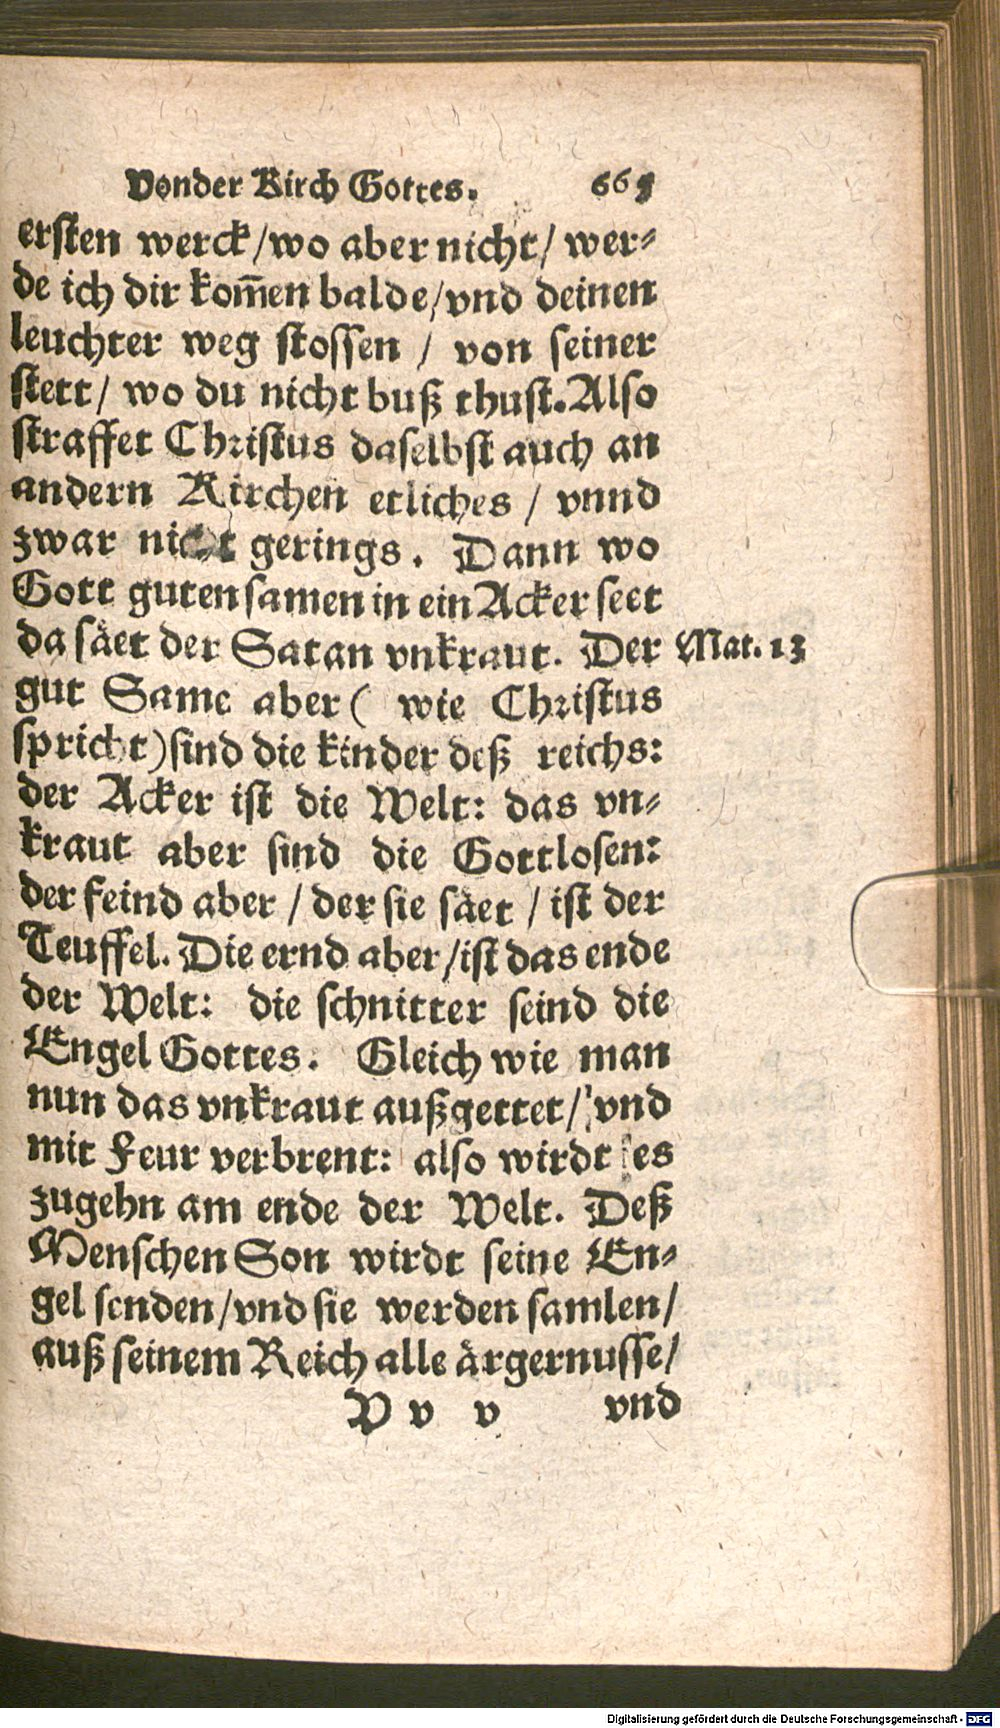 Vonder Kirch Gottes. 665
ersten werck/wo aber nicht/ wer-
de ich dir kom̃en balde/vnd deinen
leuchter weg stossen / von seiner
stett/ wo du nicht buß thust. Also
straffet Christus daselbst auch an
andern Kirchen etliches / vnnd
zwar nicht gerings. Dann wo
Gott guten samen in ein Acker seet
da säet der Satan vnkraut. Der
Mat. 13
gut Same aber ( wie Christus
spricht) sind die kinder deß reichs:
der Acker ist die Welt: das vn-
kraut aber sind die Gottlosen:
der feind aber / der sie säet / ist der
Teuffel. Die ernd aber/ist das ende
der Welt: die schnitter seind die
Engel Gottes. Gleich wie man
nun das vnkraut außgettet/ vnd
mit Feur verbrent: also wirdt es
zugehn am ende der Welt. Deß
Menschen Son wirdt seine En-
gel senden/vnd sie werden samlen/
auß seinem Reich alle ärgernusse/
V v v vnd
Digitalisierung gefördert durch die Deutsche Forschungsgemeinschaft - DFG